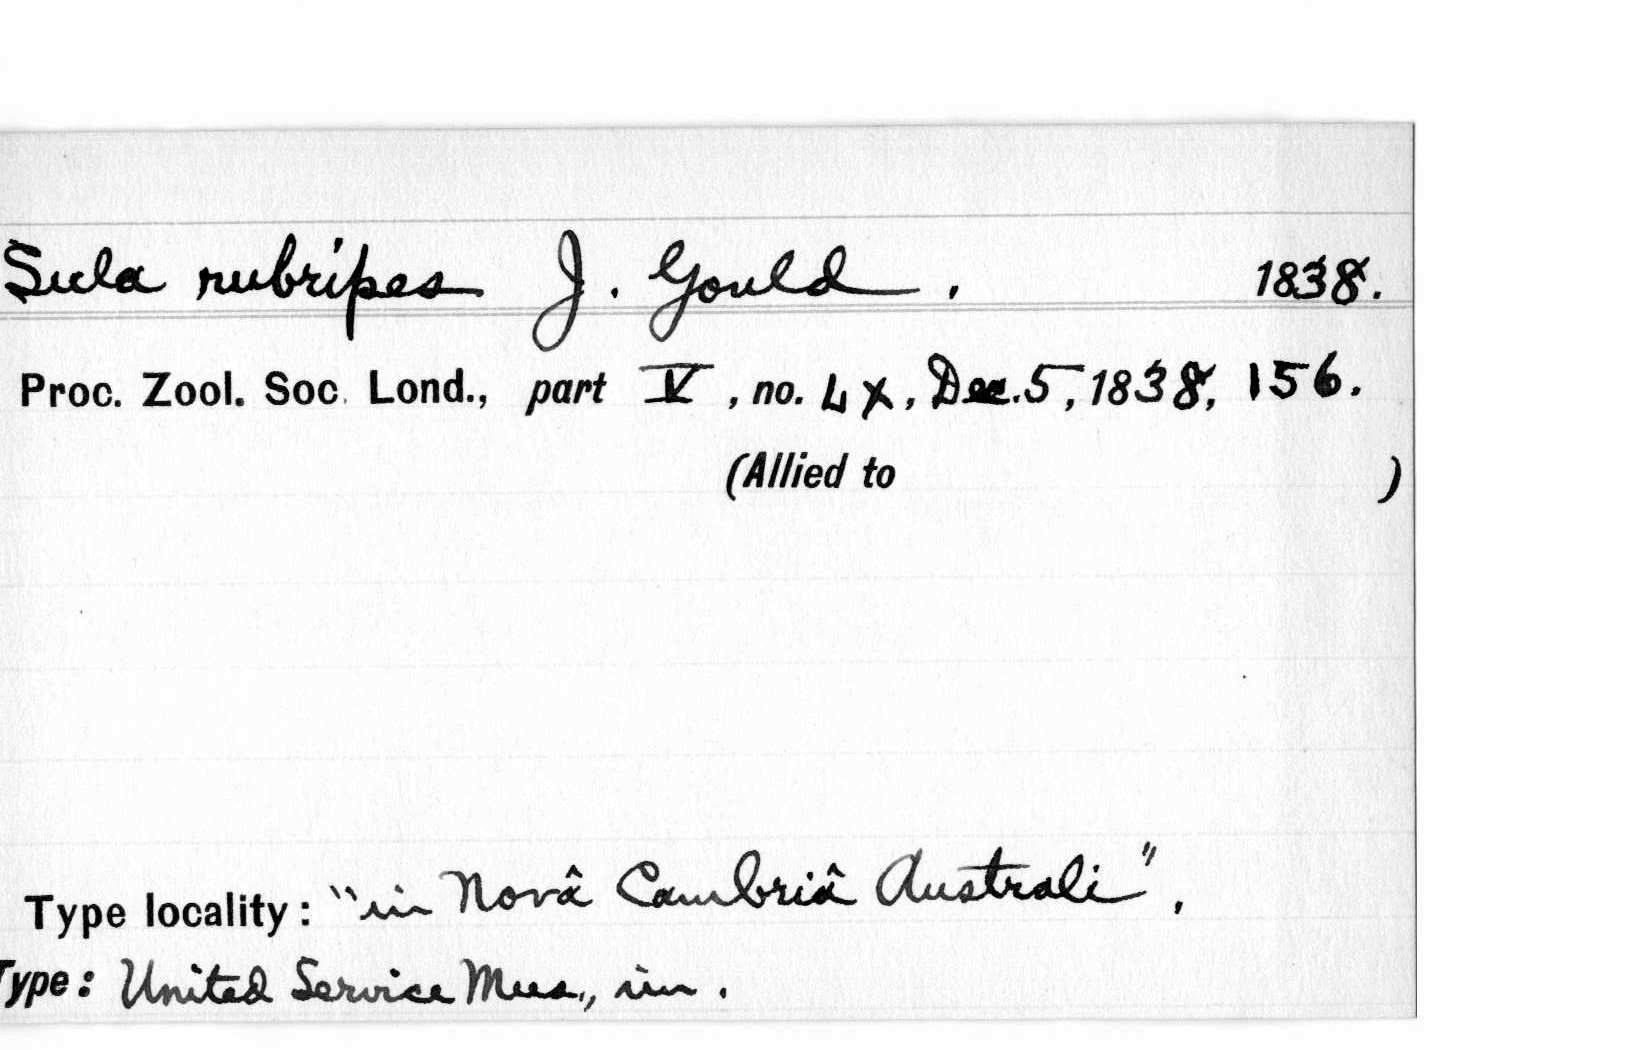 Sula rubripes J. Gould. 1838.
Proc. Zool. Soc. Lond., part V, no. Lx, Dec. 5, 1838, 156.
(Allied to )
Type locality: "in Novâ Cambriâ Australi".
Type: United Service Mus., in.